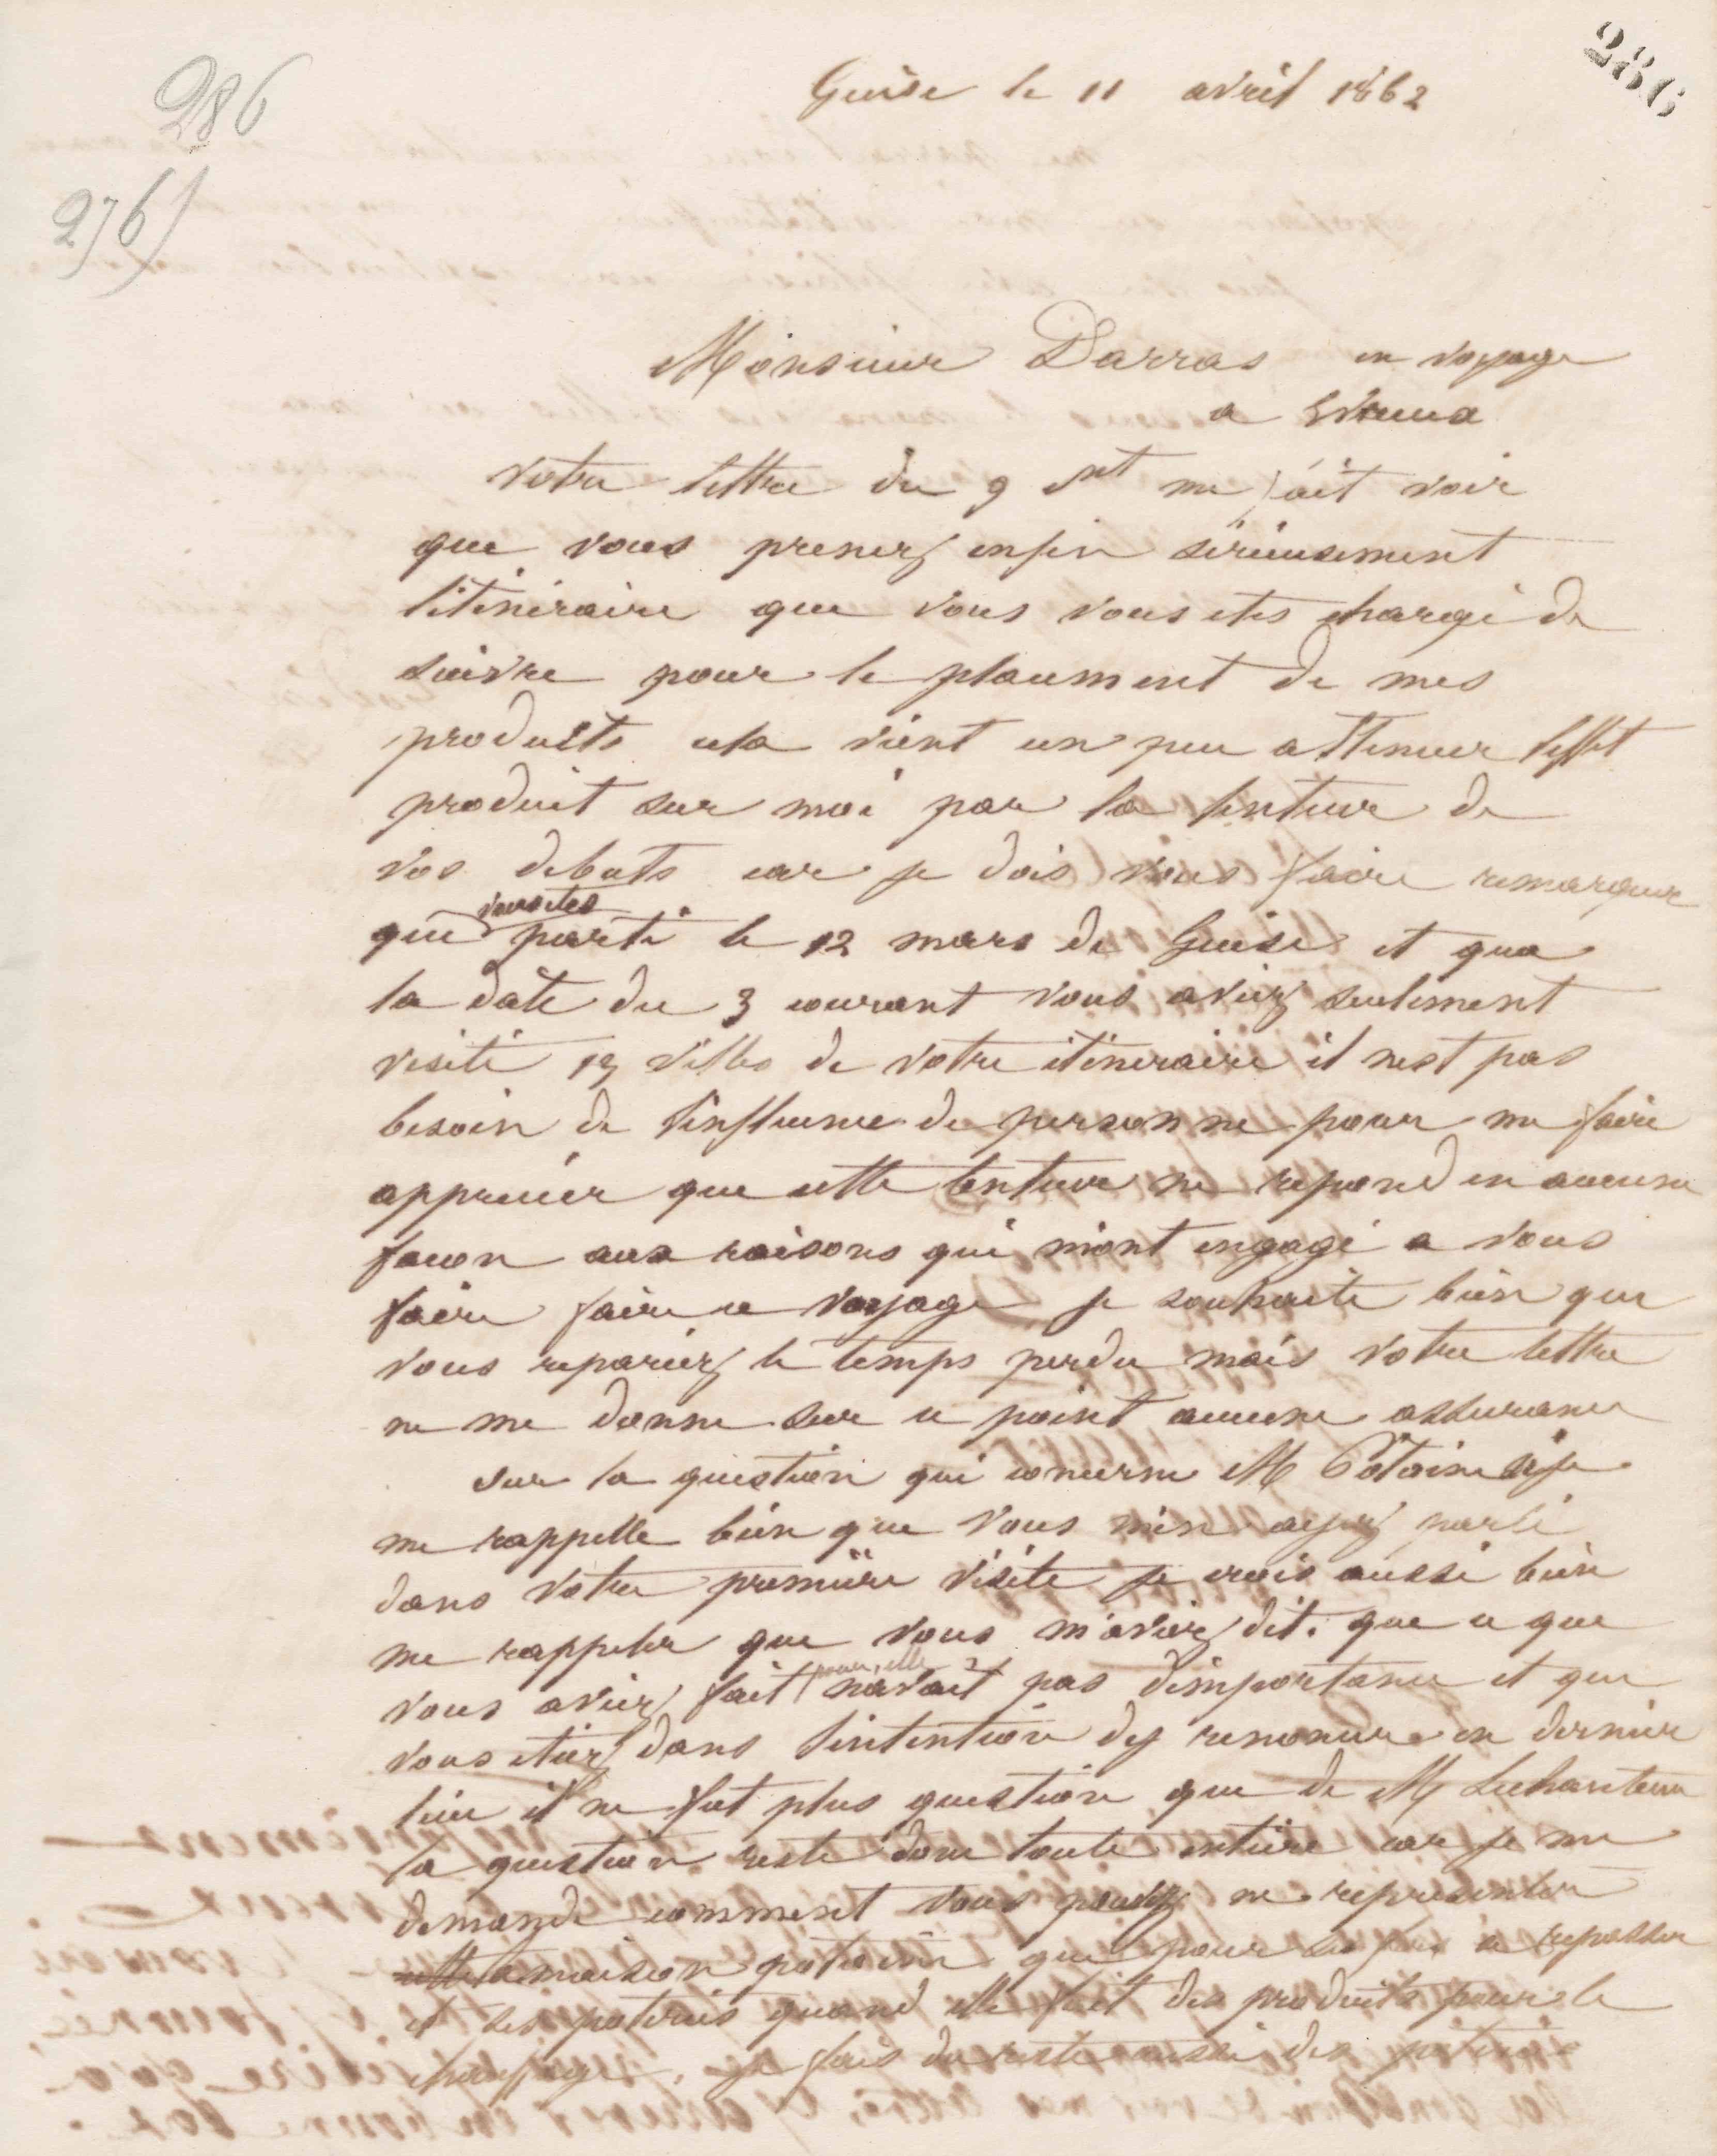 286
286
276)
Guise le 11 avril 1862
Monsieur Darras en voyage
a Evreux
votre lettre du 9 ct me fait voir
que vous prenez enfin sérieusement
l'itinéraire que vous vous etes chargé de
suivre pour le placement de mes
produits cela vient un peu attenuer l'effet
produit sur moi par la lenteur de
vos debuts car je dois vous faire remarquer
que vous etes parti le 12 mars de Guise et qua
la date du 3 courant vous aviez seulement
visité 13 villes de votre itineraire il nest pas
besoin de l'influence de personne pour me faire
apprecier que cette lenteur ne repond en aucune
facon aux raisons qui m'ont engagé a vous
faire faire ce voyage je souhaite bien que
vous repariez le temps perdu mais votre lettre
ne me donne sur ce point aucune assurance
sur la question qui concerne M Potoine je
me rappelle bien que vous m'en ayez parlé
dans votre première visite je crois aussi bien
me rappeler que vous m'aviez dit. que ce que
vous aviez fait pour elle navait pas d'importance et que
vous etiez dans l'intention dy renoncer en dernier
lieu il ne fut plus question que de M Lechanteur
la question reste donc toute entière car je me
demande comment vous pouvez ne représenter
la maison potoine que pour ses fers a repasser
et ses poteries quand elle fait des produits pour le
chauffage. je fais du reste aussi des poteries